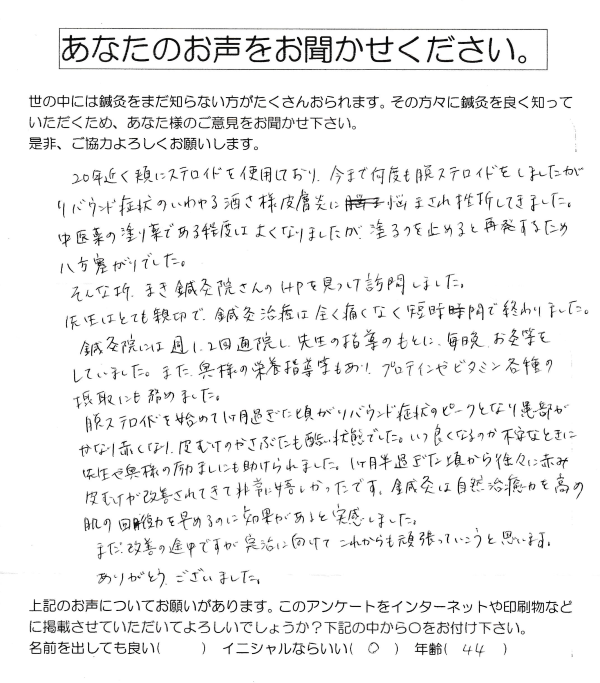 あなたのお声をお聞かせください。
世の中には鍼灸をまだ知らない方がたくさんおられます。その方々に鍼灸を良く知って
いただくため、あなた様のご意見をお聞かせ下さい。
是非、ご協力よろしくお願いします。
20年近く頬にステロイドを使用しており、今まで何度も脱ステロイドをしましたが
リバウンド症状のいわゆる酒さ様皮膚炎に悩まされ挫折してきました。
中医薬の塗り薬である程度はよくなりましたが、塗るのを止めると再発するため
八方塞がりでした。
そんな折、まき鍼灸院さんのHPを見つけ訪問しました。
先生はとても親切で、鍼灸治療は全く痛くなく短時間で終わりました。
鍼灸院には週1、2回通院し、先生の指導のもとに、毎晩、お灸等を
していました。また、奥様の栄養指導等もあり、プロテインやビタミン各種の
摂取にも努めました。
脱ステロイドを始めて1か月過ぎた頃がリバウンド症状のピークとなり患部が
かなり赤くなり、皮むけのかさぶたも酷い状態でした。いつ良くなるのか不安なときに
先生や奥様の励ましにも助けられました。1か月半過ぎた頃から徐々に赤み
皮むけが改善されてきて非常に嬉しかったです。鍼灸は自然治癒力を高め
肌の回復力を早めるのに効果があると実感しました。
まだ改善の途中ですが完治に向けてこれからも頑張っていこうと思います。
ありがとうございました。
上記のお声についてお願いがあります。このアンケートをインターネットや印刷物など
に掲載させていただいてよろしいでしょうか？下記の中から○をお付け下さい。
名前を出しても良い(　　) イニシャルならいい( ○ ) 年齢( 44 )